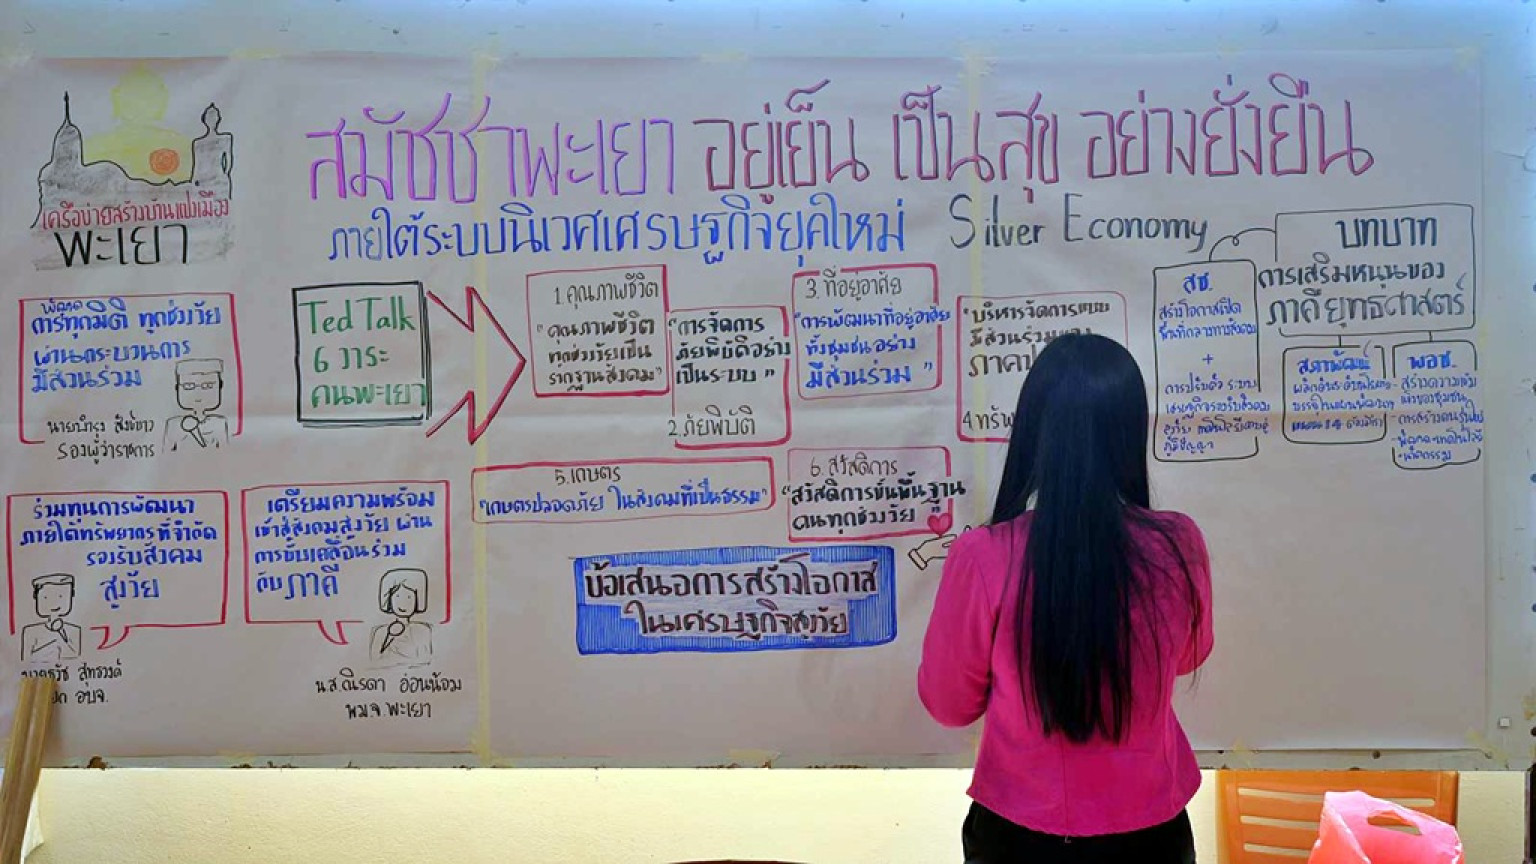 สมัชชาพะเยา อยู่เย็น เป็นสุข อย่างยั่งยืน
ภายใต้ระบบนิเวศเศรษฐกิจยุคใหม่ Silver Economy
เครือข่ายสร้างบ้านแปงเมือง
พะเยา
พัฒนา
การทุกมิติ ทุกช่วงวัย
ผ่านกระบวนการ
มีส่วนร่วม
รองผู้ว่าราชการ
ร่วมทุนการพัฒนา
ภายใต้ทรัพยากรที่จำกัด
รองรับสังคม
สูงวัย
สุทธวงค์
อบจ.
เตรียมความพร้อม
เข้าสู่สังคมสูงวัย ผ่าน
การขับเคลื่อนร่วม
กับภาคี
น.ส.ณิรดา อ่อนน้อม
พม.จ.พะเยา
Ted Talk
6 วาระ
คนพะเยา
1.คุณภาพชีวิต
"คุณภาพชีวิต
ทุกช่วงวัยเป็น
รากฐานสังคม"
"การจัดการ
ภัยพิบัติอย่าง
เป็นระบบ"
2.ภัยพิบัติ
3.ที่อยู่อาศัย
"การพัฒนาที่อยู่อาศัย
ทั้งชุมชนอย่าง
มีส่วนร่วม"
"บริหารจัดการแบบ
มีส่วนร่วมของ
4.
5.เกษตร
"เกษตรปลอดภัย ในสังคมที่เป็นธรรม"
6.สวัสดิการ
"สวัสดิการขั้นพื้นฐาน
คนทุกช่วงวัย"
ข้อเสนอการสร้างโอกาส
ในเศรษฐกิจสูงวัย
บทบาท
การเสริมหนุนของ
ภาคียุทธศาสตร์
สช.
สร้างโอกาสเปิด
พื้นที่กลางทางสังคม
+
การปรับตัว ระบบ
เศรษฐกิจรองรับสังคม
ภูมิปัญญา
สภาพัฒน์
พอช.
สร้างความเข้ม
แข็งของชุมชน
นวัตกรรม